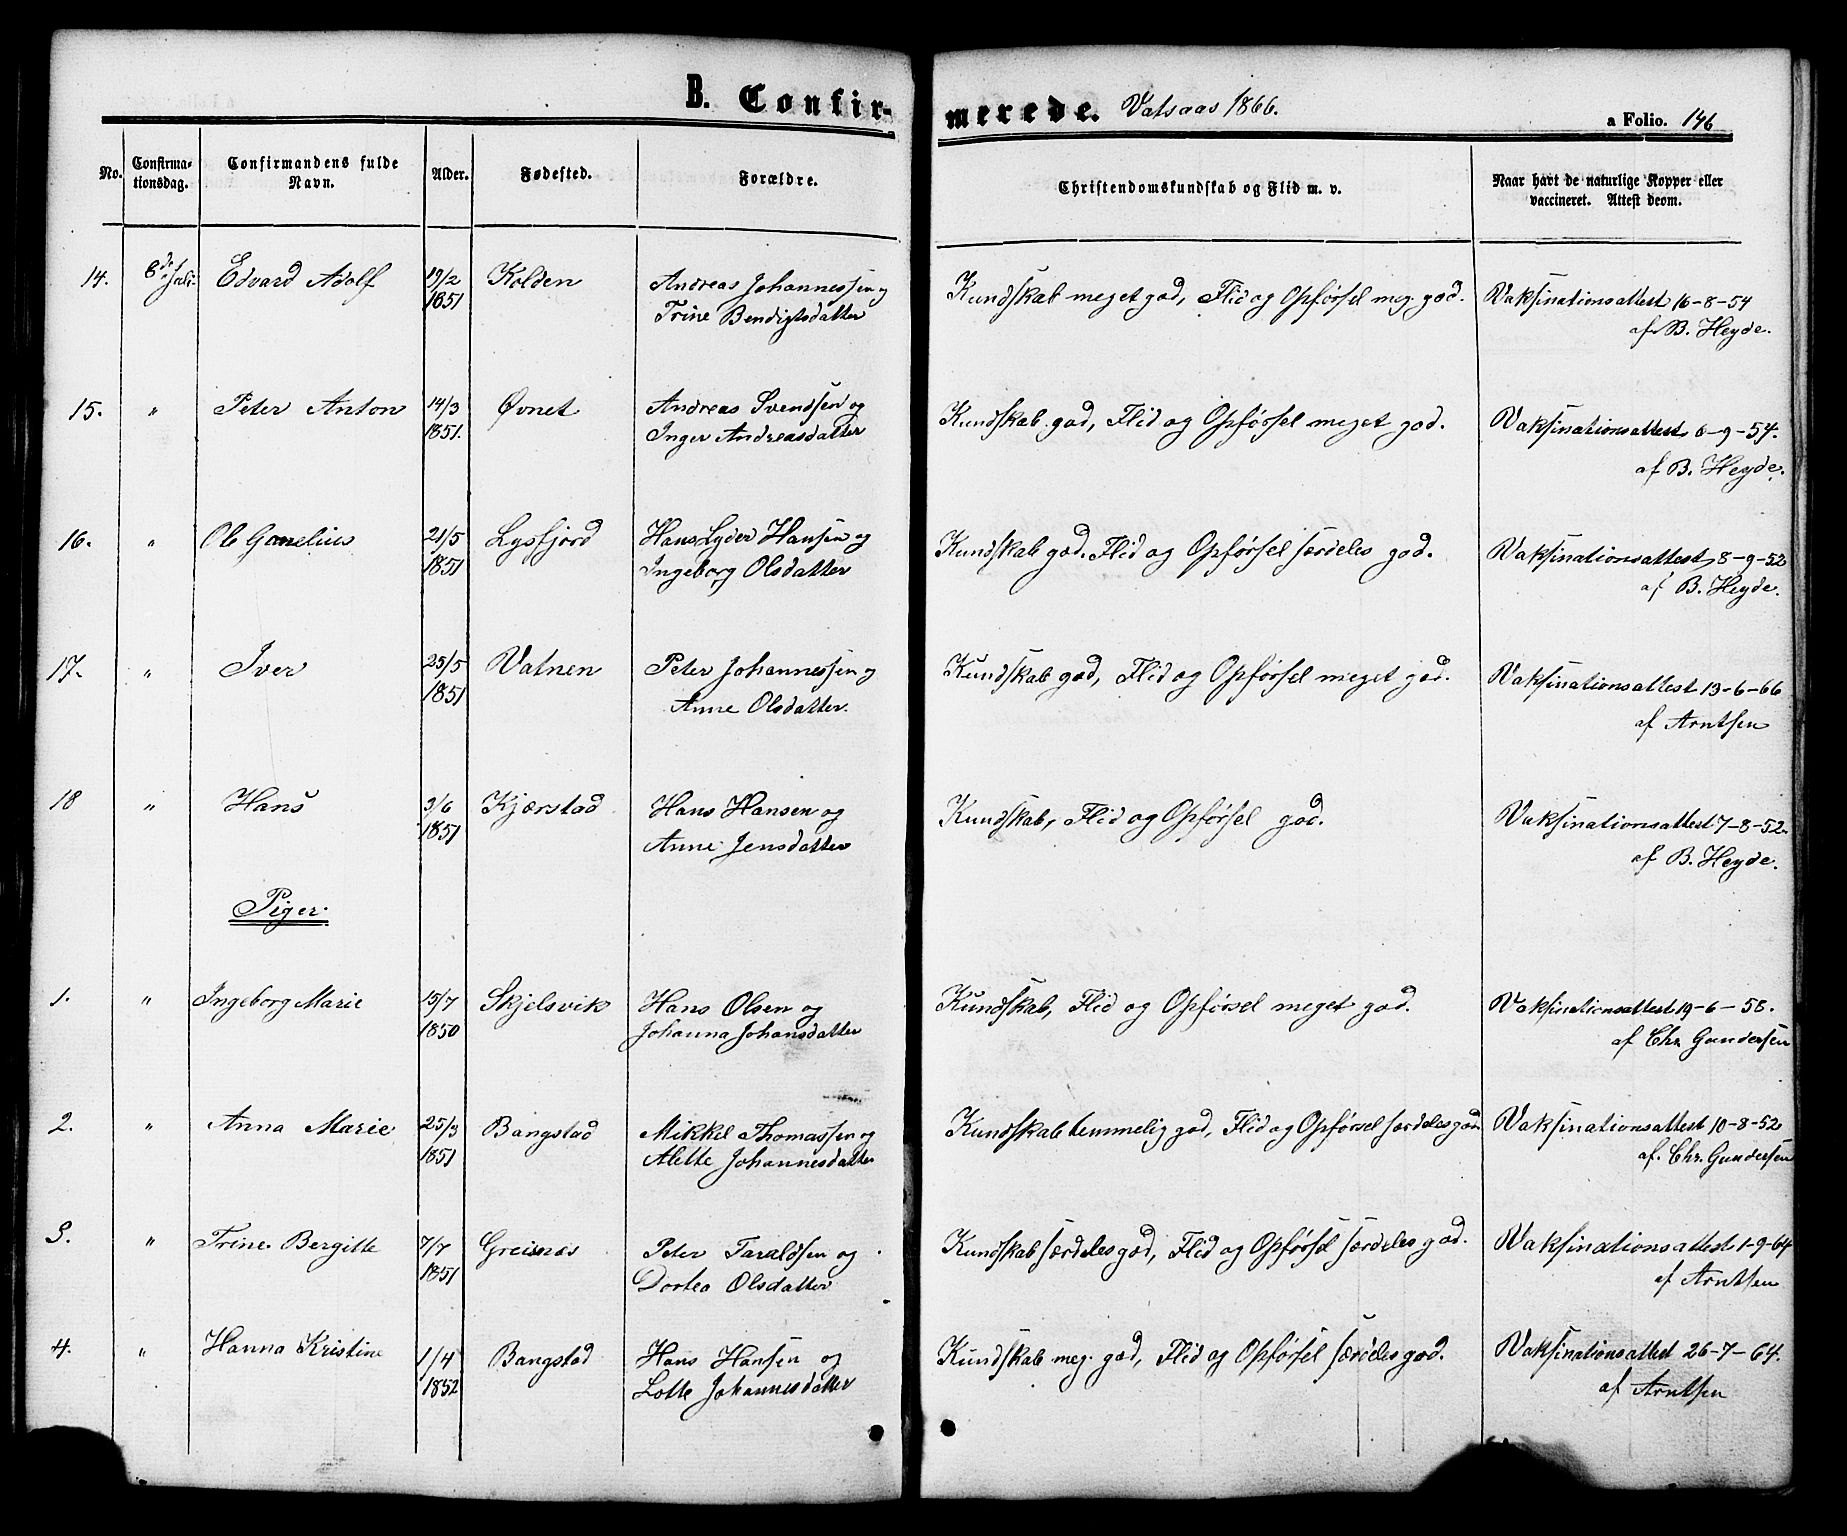 B. Confir-
merede. Vatsaas 1866.
a Folio. 146
No.
Confirma-
tionsdag.
Confirmandens fulde
Navn.
Alder.
Fødested.
Forældre.
Christendomskundskab og Flid m. v.
Naar havt de naturlige Kopper eller
vaccineret. Attest deom.
14. 8de Juli Edvard Adolf 19/2 Kolden Andreas Johannessen og Kundskab meget god, Flid og Opførsel meg. god. Vaksinationsattest 16-8-54
1851 Trine Bendigtsdatter af B. Heyde.
15. " Peter Anton 14/3 Øvnet Andreas Svendsen og Kundskab god, Flid og Opførsel meget god. Vaksinationsattest 6-9-54.
1851. Inger Andreasdatter af B. Heyde.
16. " Ole 21/5 Lysfjord Hans Lyder Hansen og Kundskab god. Flid og Opførsel særdeles god. Vaksinationsattest 8-9-52
1851 Ingeborg Olsdatter af B. Heyde.
17. " Iver 25/5 Vatnen Peter Johannessen og Kundskab god, Flid og Opførsel meget god. Vaksinationsattest 13-6-66
1851 Anne Olsdatter. af Arntsen
18 " Hans 3/6 Kjærstad Hans Hansen og Kundskab, Flid og Opførsel god. Vaksinationsattest 7-8-52.
1851 Anne Jensdatter af B. Heyde.
Piger.
1. " Ingeborg Marie 15/7 Skjelsvik Hans Olsen og Kundskab, Flid og Opførsel meget god. Vaksinationsattest 19-6-58.
1850 Johanna Johansdatter af Chr Gundersen
2. " Anna Marie 25/3 Bangstad Mikkel Thomassen og Kundskab temmelig god, Flid og Opførsel særdeles god Vaksinationsattest 10-8-52
1851 Alette Johannesdatter af. Chr. Gundersen
3. " Trine Bergitte 7/7 Greisnæs Peter Taraldsen og Kundskab særdeles god, Flid og Opførsel særdeles god. Vaksinationsattest 1-9-64
1851 Dortea Olsdatter af Arntsen
4. " Hanna Kristine 1/4 Bangstad Hans Hansen og Kundskab meg. god, Flid og Opførsel særdeles god. Vaksinationsattest 26-7-64.
1852 Lotte Johannesdatter af Arntsen